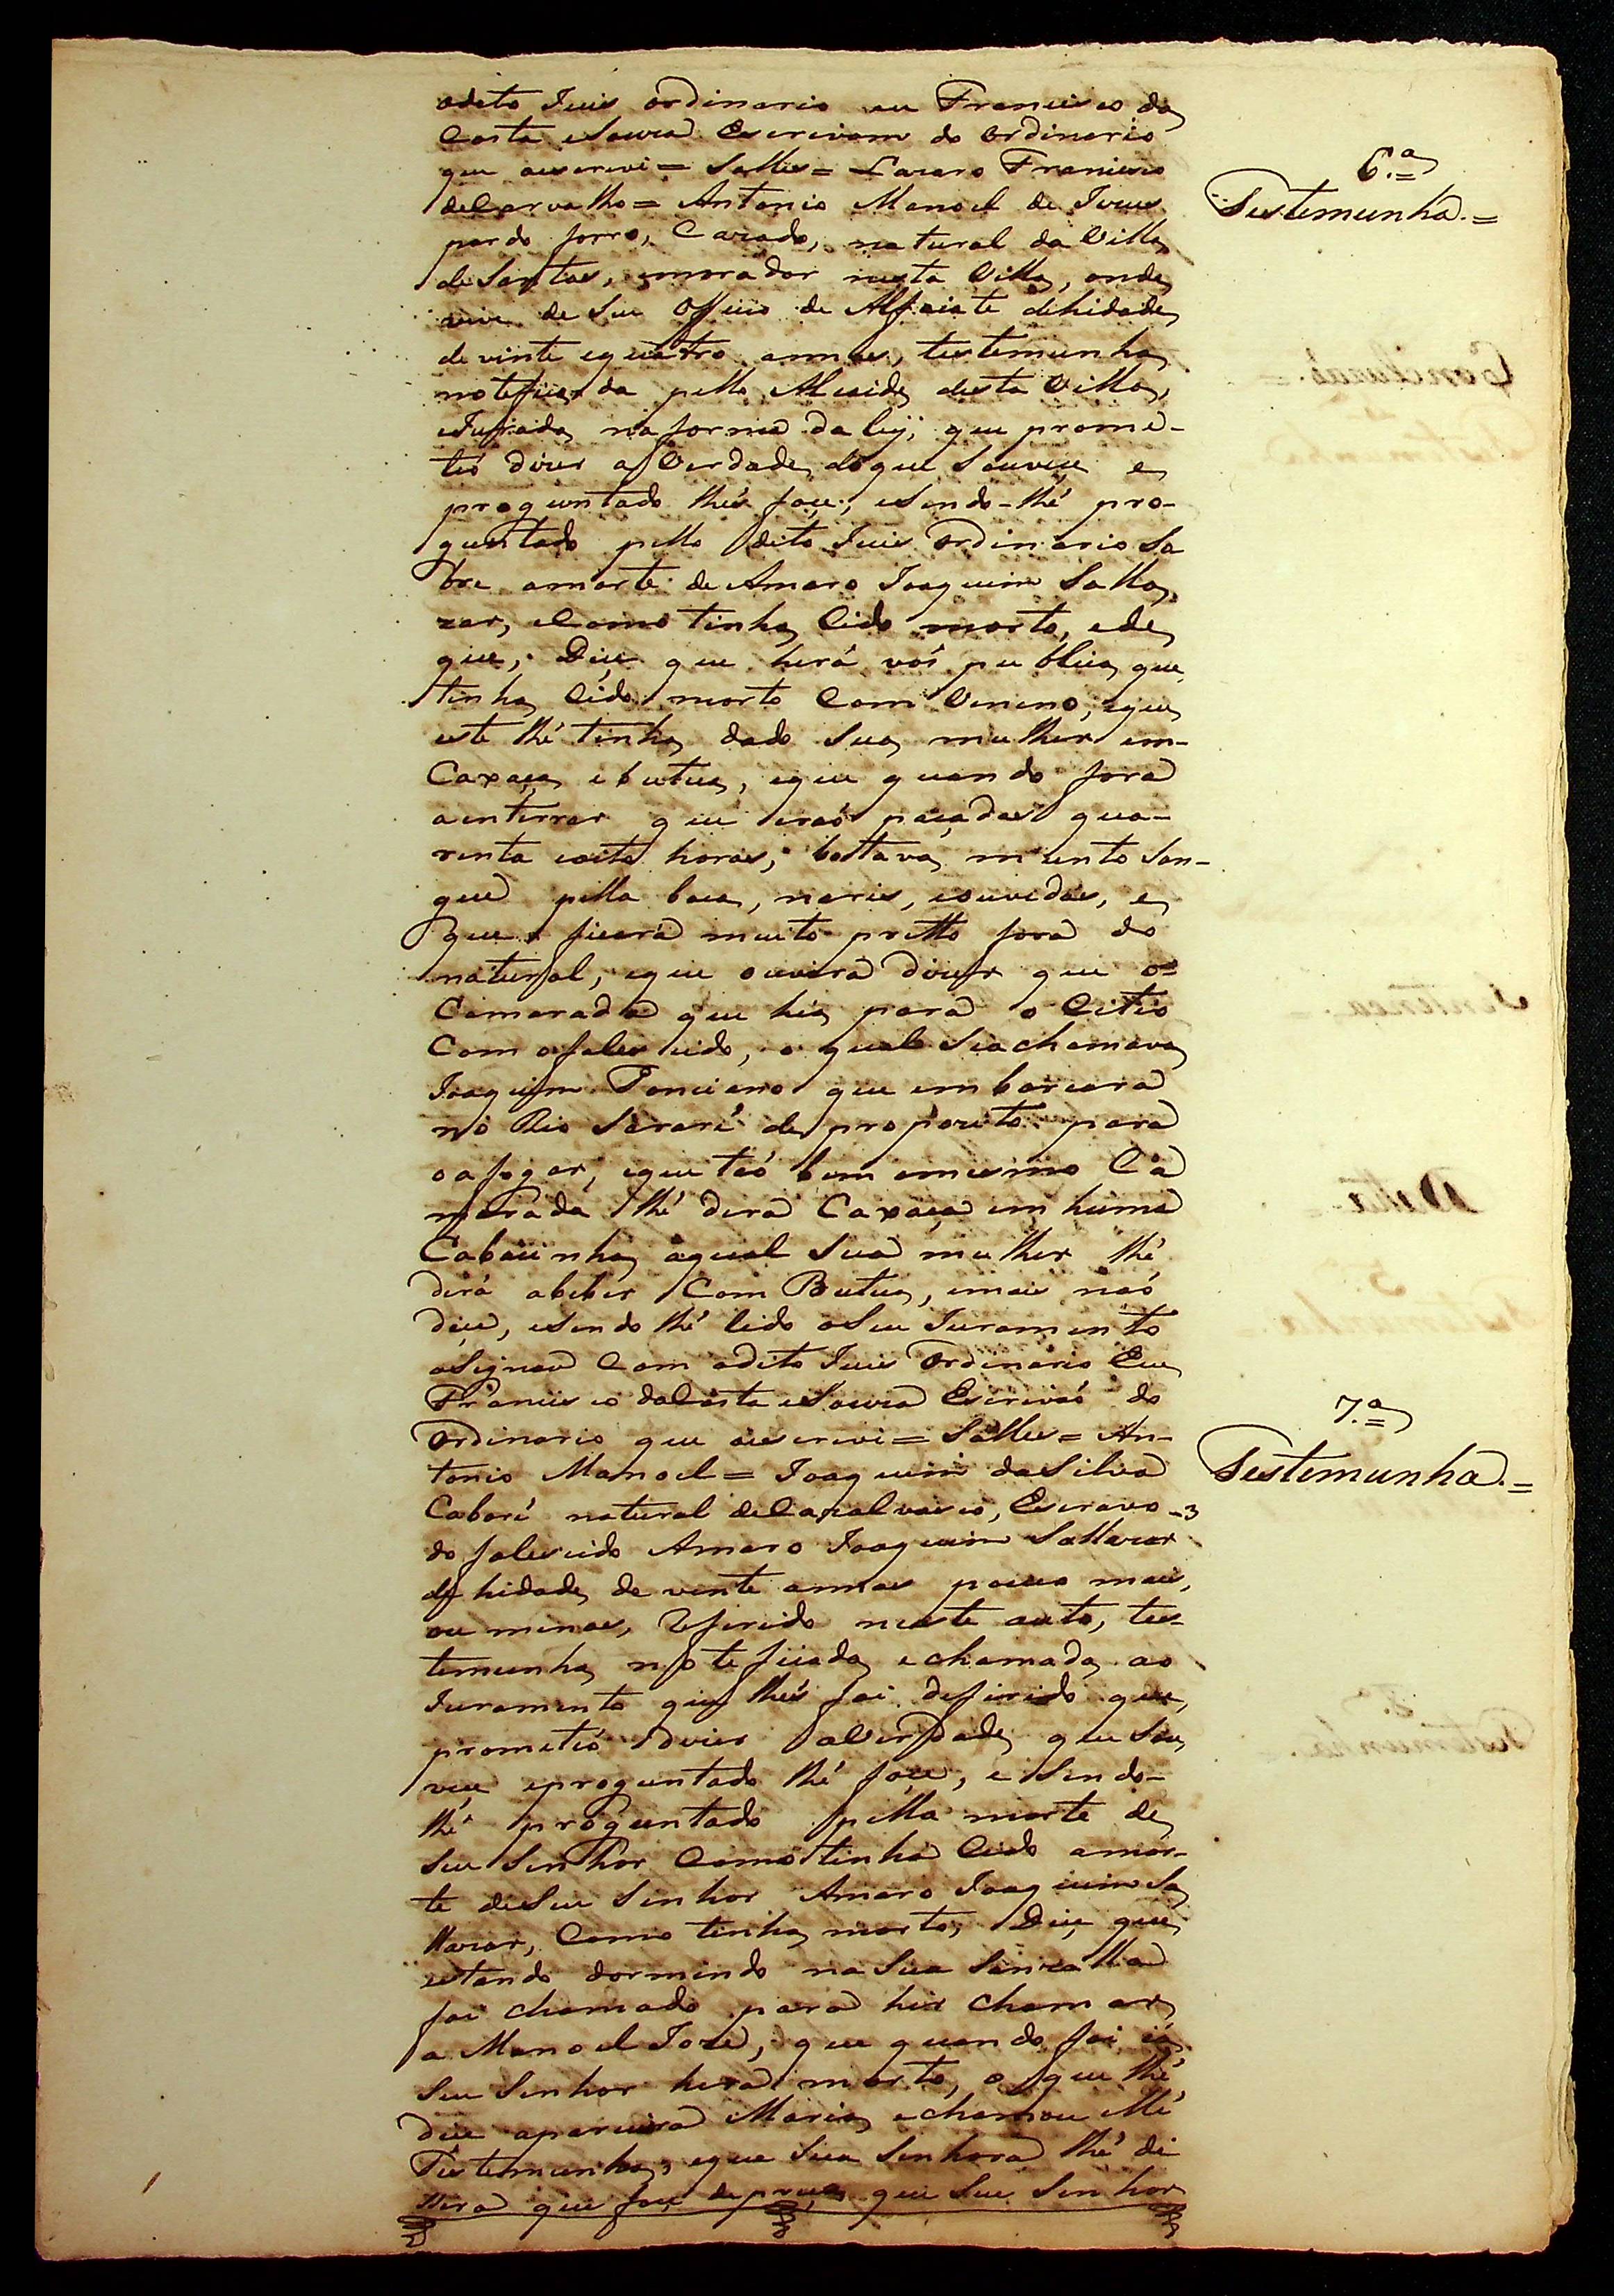 odito Juis ordinario eu Francisco da
Costa eSouza Escrivam do Ordinario
que aescrevi = Salles = Lazaro Francisco
deCarvalho = Antonio Manoel de Jesus
6.ª
Testemunha. =
pardo forro, Cazado, natural da Villa
de Santos, emorador nesta Villa, onde
vive de Seu Officio de Alfaiate dehidade
de vinte equatro annos, testemunha
noteficada pello Alcaide desta Villa,
eJurada na forma da ley, que prome-
teó dizer a Verdade doque Souveçe e
proguntado lhé foçe; eSendo-lhé pro-
guntado pello dito Juis Ordinario So
bre amorte de Amaro Joaquim Salla
zar, eComo tinha Cido morto, ede
que; Diçe que herá vós publica que
tinha Cido morto Com Veneno, eque
este lhé tinha dado Sua mulher em-
Caxaça ebutua, eque quando fora
aenterrar que eraó paçadas qua-
renta eoito horas, bottava munto San-
gue pella boca, naris, eouvidos, e
que ficara muito pretto fora do
natural, eque ouvira dizer que o-
Camarada que hia para o Citio
Com ofalescido, o qual Seachamava
Joaquim Ponciano que embarcara
no Rio Sararé de propozito para
oafogar, eque taó bem omesmo Ca
marada lhé dera Caxaça em huma
Cabacinha aqual Sua mulher lhé
dera abeber Com Butua, emais naó
diçe, eSendo lhé lido oSeu Juramento
aSignou Com odito Juis Ordinario Eu
Francisco daCosta eSouza Escrivaó do
Ordinario que aescrevi = Salles = An-
tonio Manoel = Joaquim daSilva
7.ª
Testemunha. =
Caboré natural deCazalvasco, Escravo
do falescido Amaro Joaquim Sallazar
de hidade de vente annos pouco mais,
ou menos, Referido neste auto, tes-
temunha noteficada echamada ao
Juramento que lhé foi deferido que
prometeó dizer aVerdade que Sou
veçe eproguntado lhé foçe, e Sendo-
lhé proguntado pella morte de
Seu Senhor Como tinha Cido amor-
te deSeu Senhor Amaro Joaquim Sa
llazar, Como tinha morto, Diçe que
estando dormindo na Sua Sanzalla
foi chamado para hir chamar
a Manoel Joze, que quando foi já
Seu Senhor hera morto, o que lhé
diçe aparceira Maria echamou Elle
Testemunha, eque Sua Senhora lhé di
çera que foçe depreça que Seu Senhor